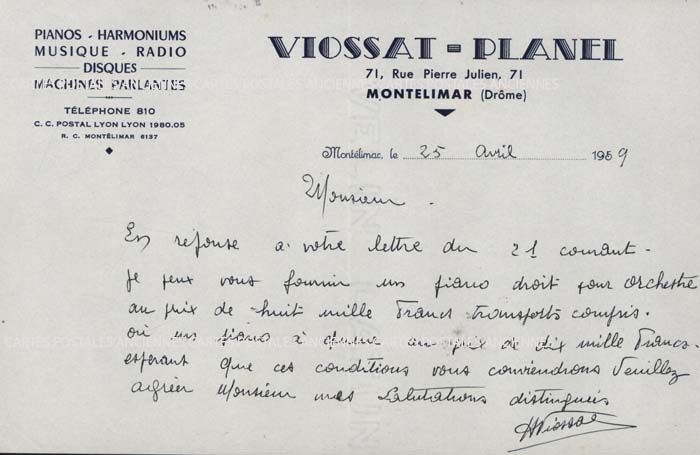 PIANOS - HARMONIUMS
MUSIQUE - RADIO
DISQUES
MACHINES PARLANTES
TÉLÉPHONE 810
C. C. POSTAL LYON LYON 1980.05
R. C. MONTÉLIMAR 6137
VIOSSAT = PLANEL
71, Rue Pierre Julien, 71
MONTELIMAR (Drôme)
Montélimar, le 25 avril 1959
Monsieur.
En réponse a votre lettre du 21 courant.
je peux vous fournir un piano droit pour orchestre
au prix de huit mille Francs transports compris.
où un piano à queue au prix de dix mille Francs.
esperant que ces conditions vous conviendrons Veuillez
agréer Monsieur mes Salutations distinguées
HViossat
CARTES POSTALES ANCIENNES